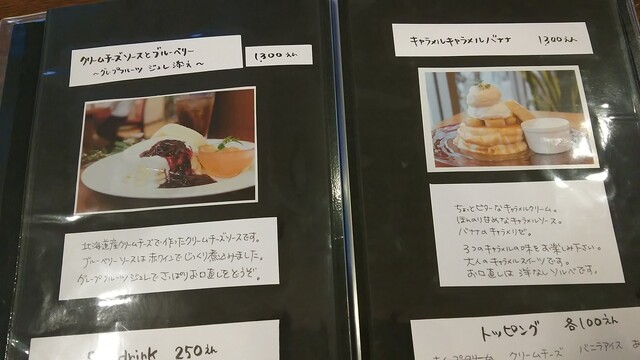 クリームチーズソースとブルーベリー
〜グレープフルーツ ジュレ添え〜
1300えん
北海道産クリームチーズで作ったクリームチーズソースです。
ブルーベリーソースは赤ワインでじっくり煮込みました。
グレープフルーツジュレでさっぱりお口直しをどうぞ。
drink 250えん
キャラメルキャラメルバナナ 1300えん
ちょっとビターなキャラメルクリーム。
ほんのり甘めなキャラメルソース。
バナナのキャラメリゼ。
3つのキャラメルの味をお楽しみ下さい。
大人のキャラメルスイーツです。
お口直しは 洋なしソルベです。
トッピング 各100えん
クリームチーズ バニラアイス